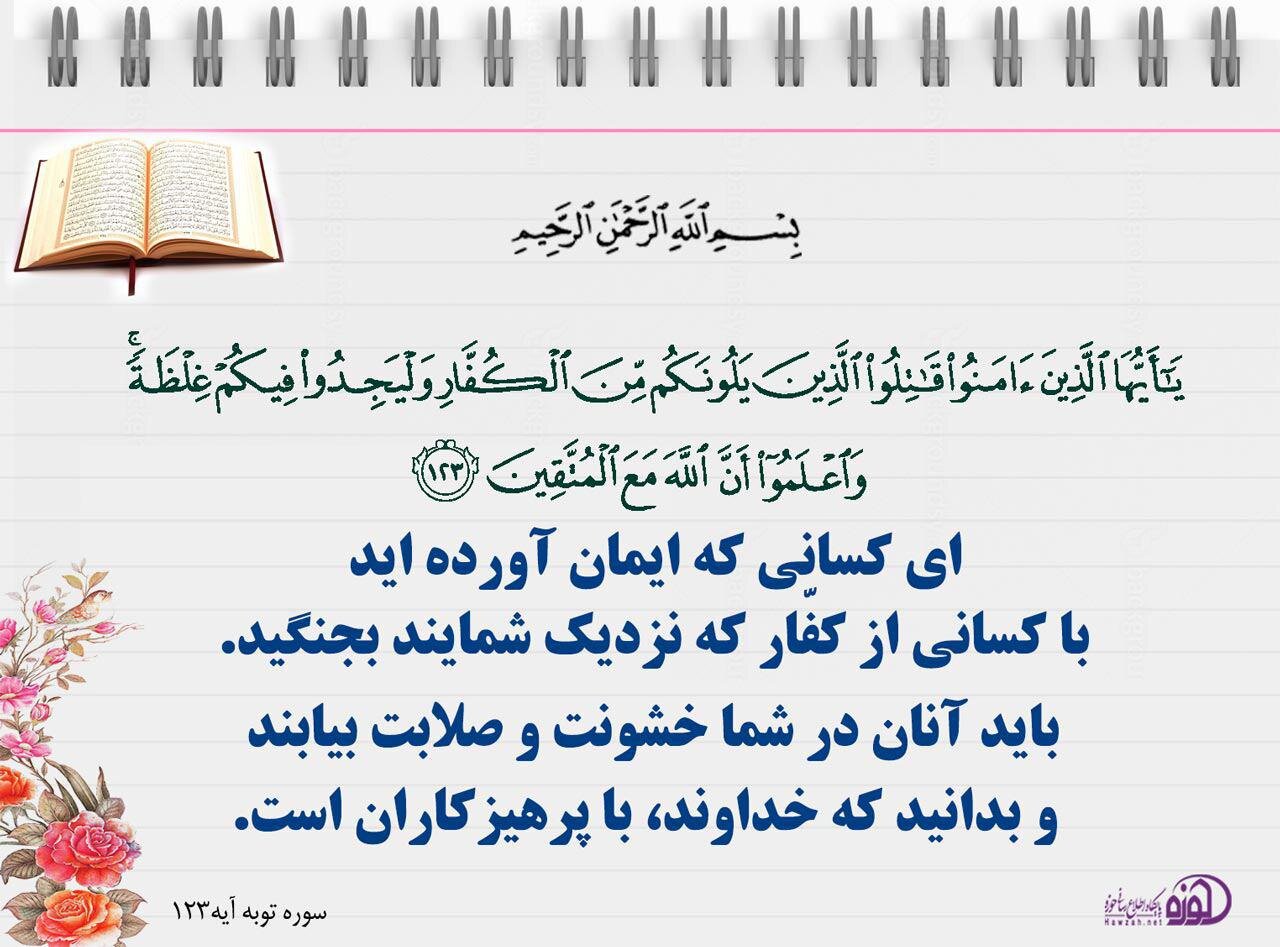 بِسْمِ ٱللَّهِ ٱلرَّحْمَٰنِ ٱلرَّحِيمِ
يَٰٓأَيُّهَا ٱلَّذِينَ ءَامَنُوا۟ قَٰتِلُوا۟ ٱلَّذِينَ يَلُونَكُم مِّنَ ٱلْكُفَّارِ وَلْيَجِدُوا۟ فِيكُمْ غِلْظَةً ۚ
وَٱعْلَمُوٓا۟ أَنَّ ٱللَّهَ مَعَ ٱلْمُتَّقِينَ ١٢٣
ای کسانی که ایمان آورده اید
با کسانی از کفّار که نزدیک شمایند بجنگید.
باید آنان در شما خشونت و صلابت بیابند
و بدانید که خداوند، با پرهیزکاران است.
سوره توبه آیه۱۲۳
حوزه پایگاه اطلاع رسانی حوزه
Hawzah.net